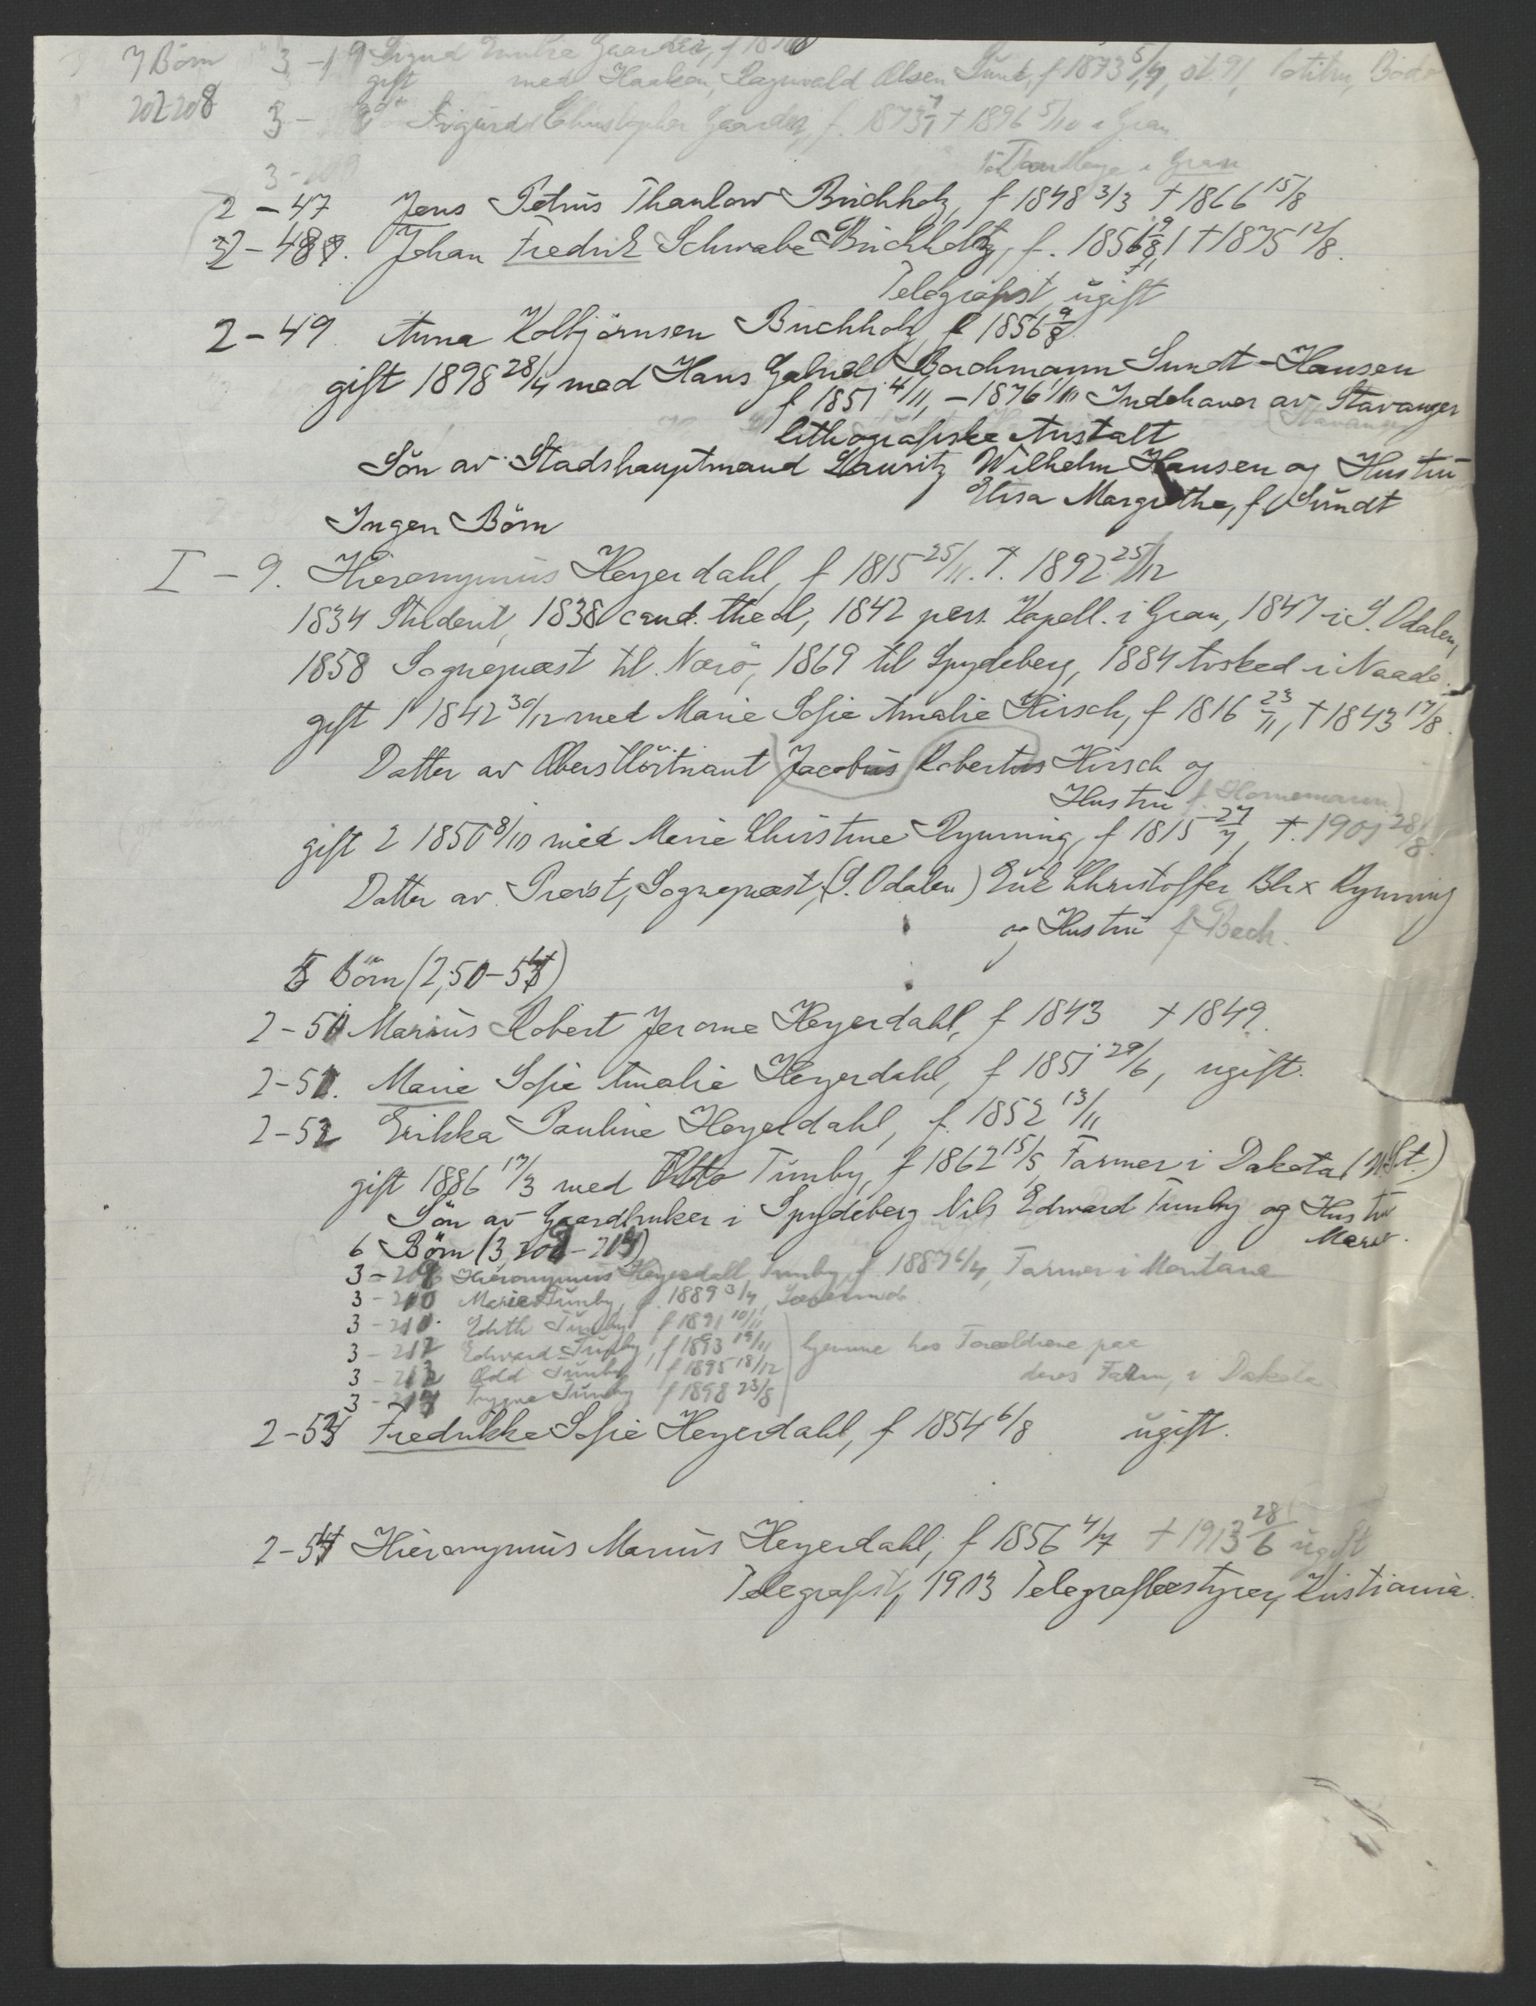 7 Börn 3 - 19 Gaarder, f 18
202-208 gift med Haakon, Ragnvald Olsen f 1873 5/4, Bodö
3 - Sigurd Christopher Gaarder, f. 1873 † 1896 5/10 i Gran
3 - i Gran
2 - 47 Jens Petrus Thaulow Buchholz, f 1848 3/3 † 1866 15/8
2 - 48. Johan Fredrik Schwabe Buchholtz, f. 1851 † 1875 12/8.
Telegrafist, ugift
2 - 49 Anna Kolbjörnsen Buchholz, f 1856 9/8
gift 1898 28/4 med Hans Gabriel Bachmann Sundt-Hansen
f 1851 4/11, - 1876 1/10 Indehaver av Stavanger
(Stavanger)
lithografiske Anstalt
Sön av Stadshauptmand Lauritz Wilhelm Hansen og Hustru
Elisa Margrethe, f Sundt
Ingen Börn
I - 9. Hieronymus Heyerdahl, f 1815 25/11. †. 1892 25/12
1834 Student, 1838 cand. theol, 1842 pers. Kapell. i Gran, 1847 i S. Odalen,
1858 Sognepræst til Nærö, 1869 til Spydeberg, 1884 Avsked i Naade.
gift 1 1842 30/12 med Marie Sofie Amalie Hirsch, f 1816 23/11, † 1843 17/8.
Datter av Oberstlöitnant Jacobus Robertus Hirsch og
Hustru f. Hornemann
gift 2 1850 8/10 med Marie Christine Rynning, f 1815 27/7, †. 1901 28/8.
Datter av Provst, Sognepræst, (S. Odalen) Erik Christoffer Blix Rynning
og Hustru f Bech.
5 Börn (2,50-54)
2-50 Marius Robert Jerome Heyerdahl, f 1843 † 1849.
2-51. Marie Sofie Amalie Heyerdahl, f 1851 29/6, ugift.
2-52 Erikka Pauline Heyerdahl, f. 1852 13/11
gift 1886 17/3 med Otto Tumby, f 1862 15/5, Farmer i Dakota (U. St.)
Sön av Gaardbruker i Spydeberg Nils Edward Tumby og Hustru
Marie.
6 Börn (3, 209-214)
3-209 Hieronymus Heyerdahl Tumby, f. 1887 6/4, Farmer i Montana
3-210 Marie Tumby, f. 1889 3/4, Lærerinde
3-211. Edith Tumby f 1891 10/11
3-212 Edward Tumby, f 1893 19/11 hjemme hos Forældrene paa
3-213 Odd Tumby f 1895 18/12 deres Farm, i Dakota
3-214 Trygve Tumby f 1898 23/8
2-53 Fredrikke Sofie Heyerdahl, f 1854 6/8 ugift.
2-54 Hieronymus Marius Heyerdahl, f 1856 4/7 † 1913 28/6 ugift
Telegrafist, 1903 Telegrafbestyrer, Kristiania.